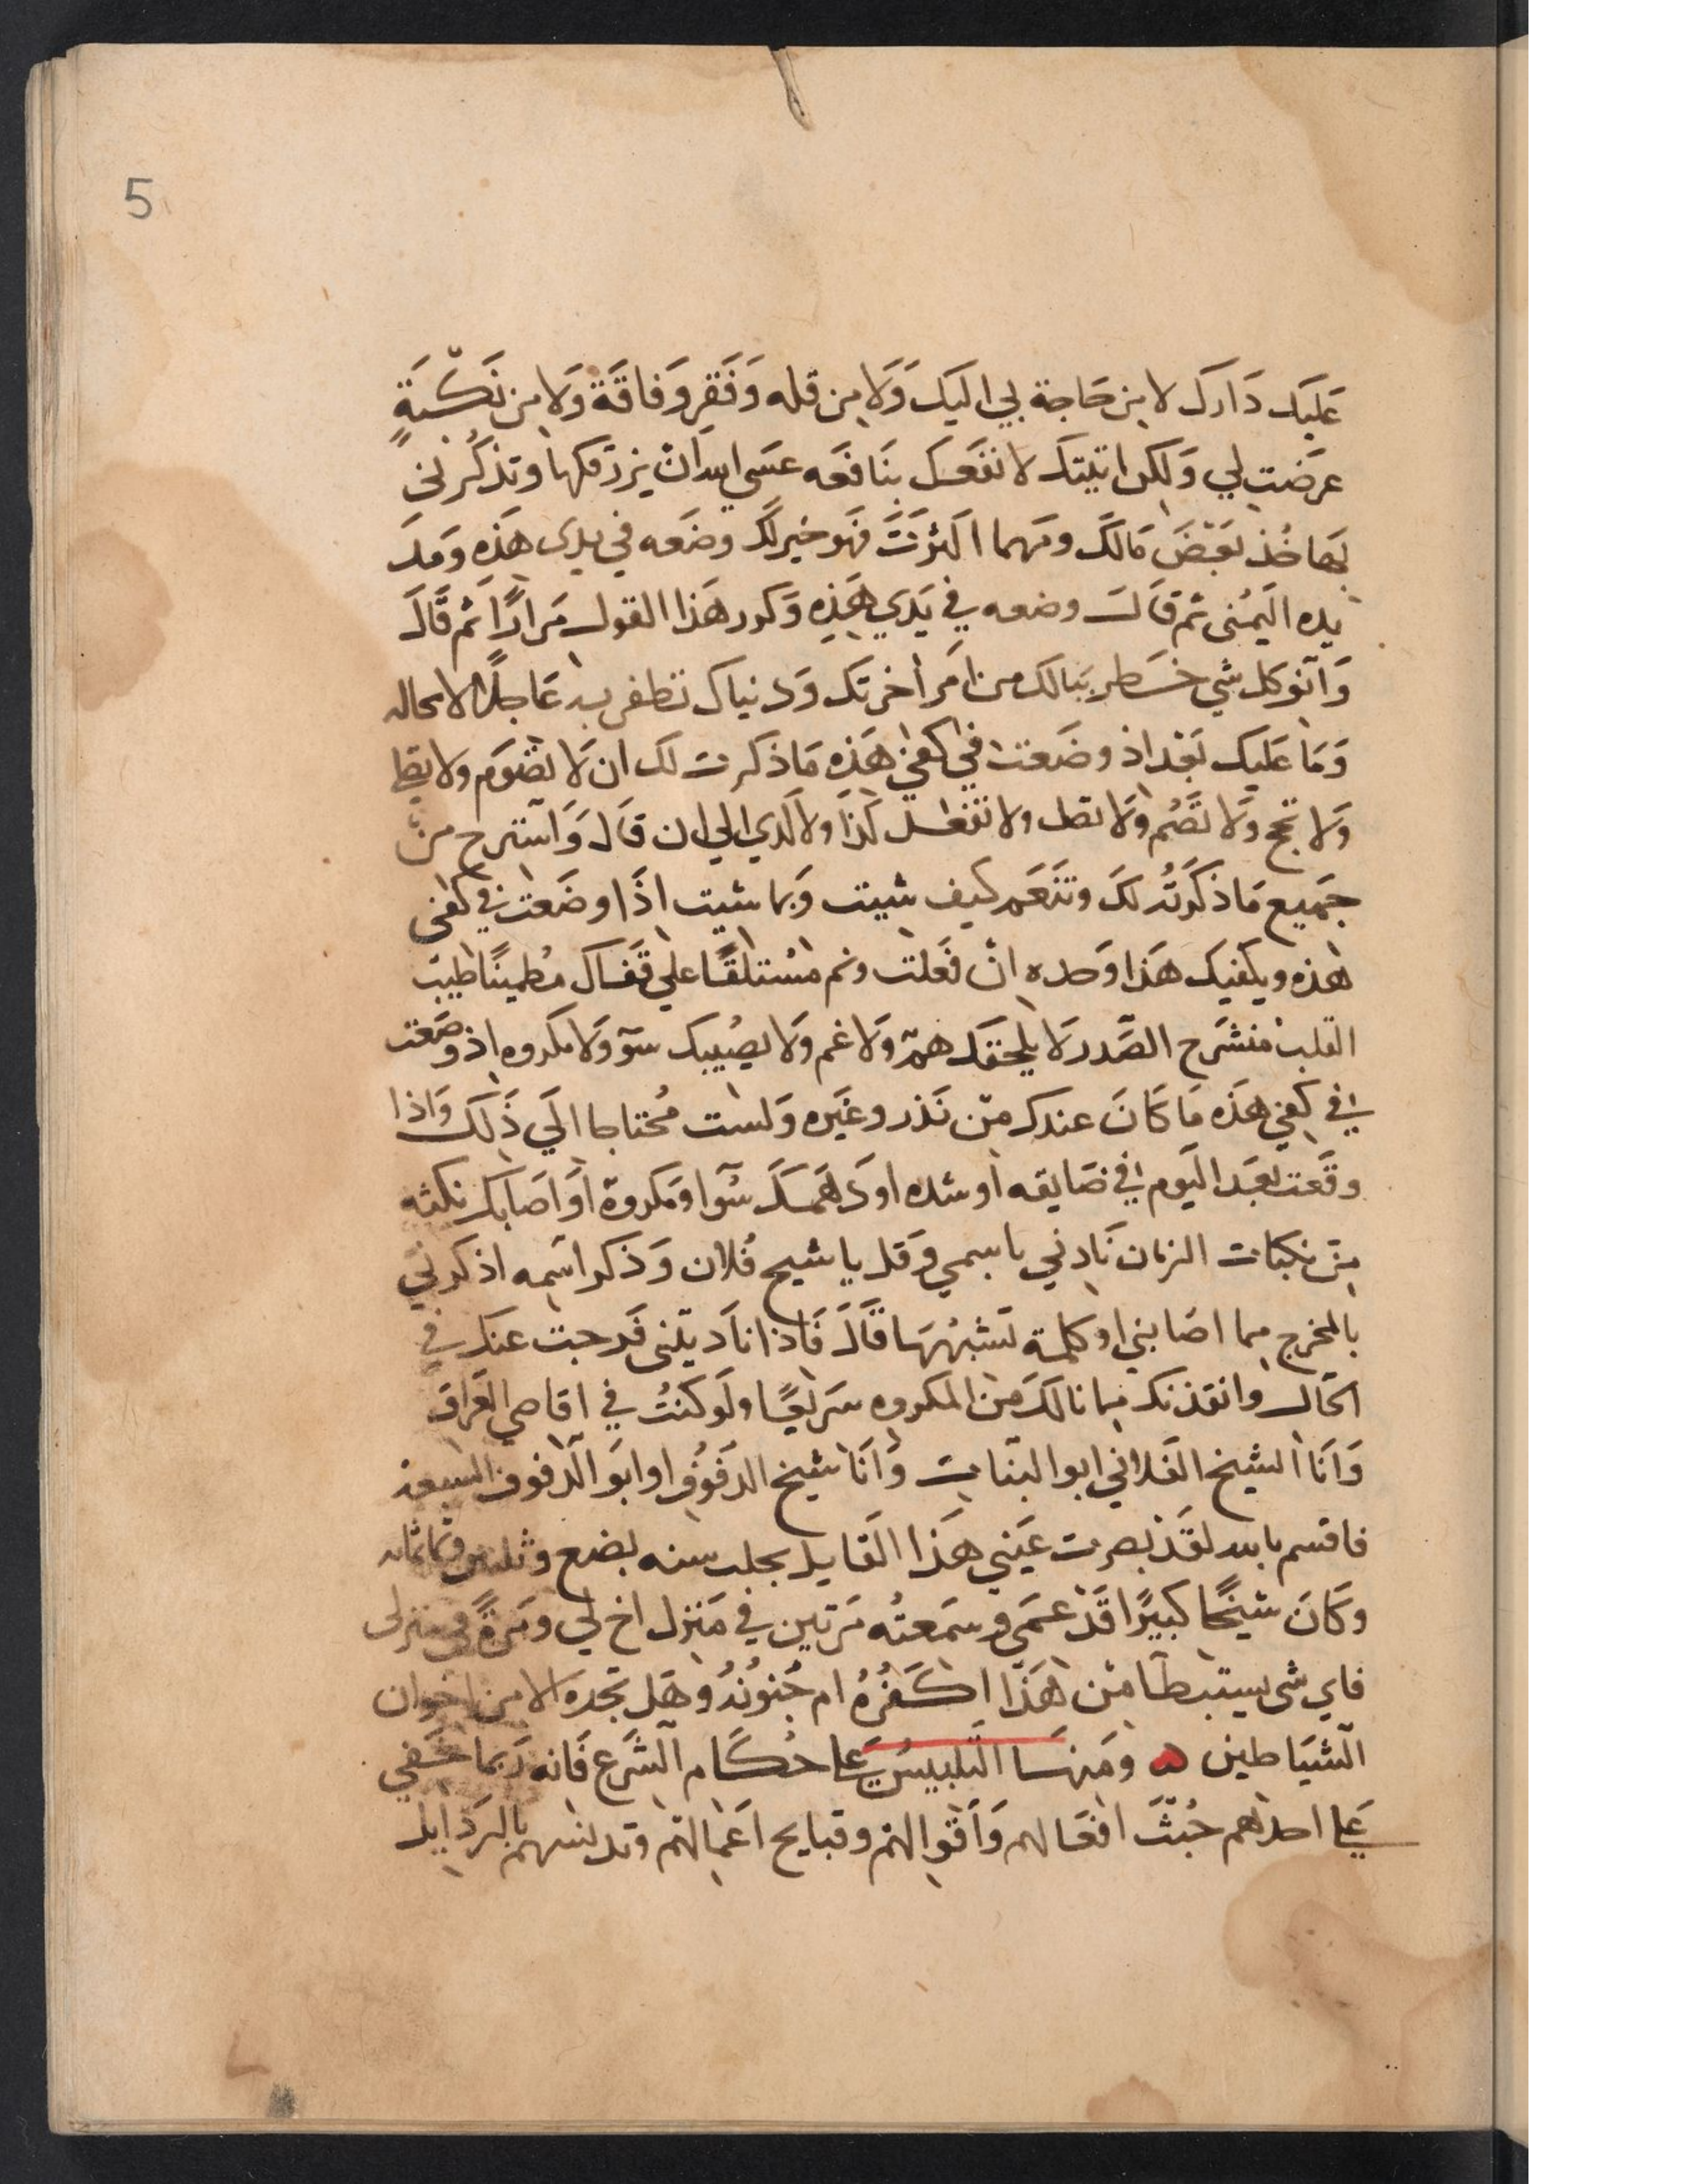 5
عَليَك دَارك لا من حَاجة لي اليَك وَلَا من قله وَفَقرٍ وَفاقَة وَلا من نَكْبَةٍ
عرضَت لي وَلكن اتيتك لانفعك بنَافعَه عسَي الله انْ يرزقكها وتذكُرني
بها خُذ بَعْضَ مَالكَ ومَهما اكثرْتَ فَهو خير لكَ وضَعه في يدى هَذه وَمدَ
يده اليَمُنى ثم قَالَ وضعه في يَدي هَذِه وَكرر هَذا القول مَرارًا ثم قَالَ
وَانو كل شي خَطر ببَالك من امَر اخرتَك وَدنياك تظفر به عَاجلًا لامحاله
وَمَا عَليك بَعْد اذ وضَعت في كفي هَذه مَا ذكرت لك ان لَا تصُوم ولا تصلي
وَلا تحج وَلا تَصُم وَلا تصل ولا تفعل كذَا ولا كذي الي ان قَالَ وَاسْترح من
جَميع مَا ذكَرتُه لكَ وتنَعم كيف شيت وَبما شيت اذَا وضَعت في كفى
هذه ويكفيك هَذا وَحده انْ فَعلت ونم مسْتلقًا علي قَفَاك مُطمينًا طيبَ
القلب منشرَح الصَّدر لَا يلحقكَ همٌ وَلا غم وَلا يصُيبك سوٓ وَلا مكروه اذ وضَعت
في كفي هذَه مَا كَانَ عندك من نَذر وغَيره وَلست مُحتاجا الَي ذَلك وَاذا
وقَعت بعَد اليَوم في ضَايقه او شده او دَهمكَ سُوٓ او مَكروه اوَ اصَابك نكبه
من نكبات الزمان نَادني باسمي وَقل يا شيخ فُلان وَذكر اسَمه اذكرني
بالمخرج مما اصَابني او كلمة تشبهُهَا قَالَ فَاذا نادَيتَني فَرجت عنك في
الحَال وانقذتك مما نالكَ من المكروه سَريعًا ولَو كنتُ في اقاصي العراق
وَانَا الشيخ الفَلاني ابو البنَات وَانَا شيخ الدفُوف او ابوَ الدفوف السبعة
فاقسم بالله لقَد بصرت عَيَني هَذا القَايل بحلب سنه بضع وثلثين وثمانمائه
وكَانَ شيخًا كبيرًا قَدْ عَمَي وسمَعتُه مَرتين في مَنزل اخ لي ومَرةً في منزلى
فاي شى يستَبطَا من هَذَا اكُفْرُهُ ام جُنوُنُهُ وهَل تجده الا من اخوان
الشيَاطين ۞ ومَنهَا التَلبيسُ عَلي حُكَام الشَرع فَانه رَبما خَفي
عَلي احدهم خُبثَ افعَالهم وَاقوالهم وقبايح اعَمالهم وتدنسهم بالرَذايل